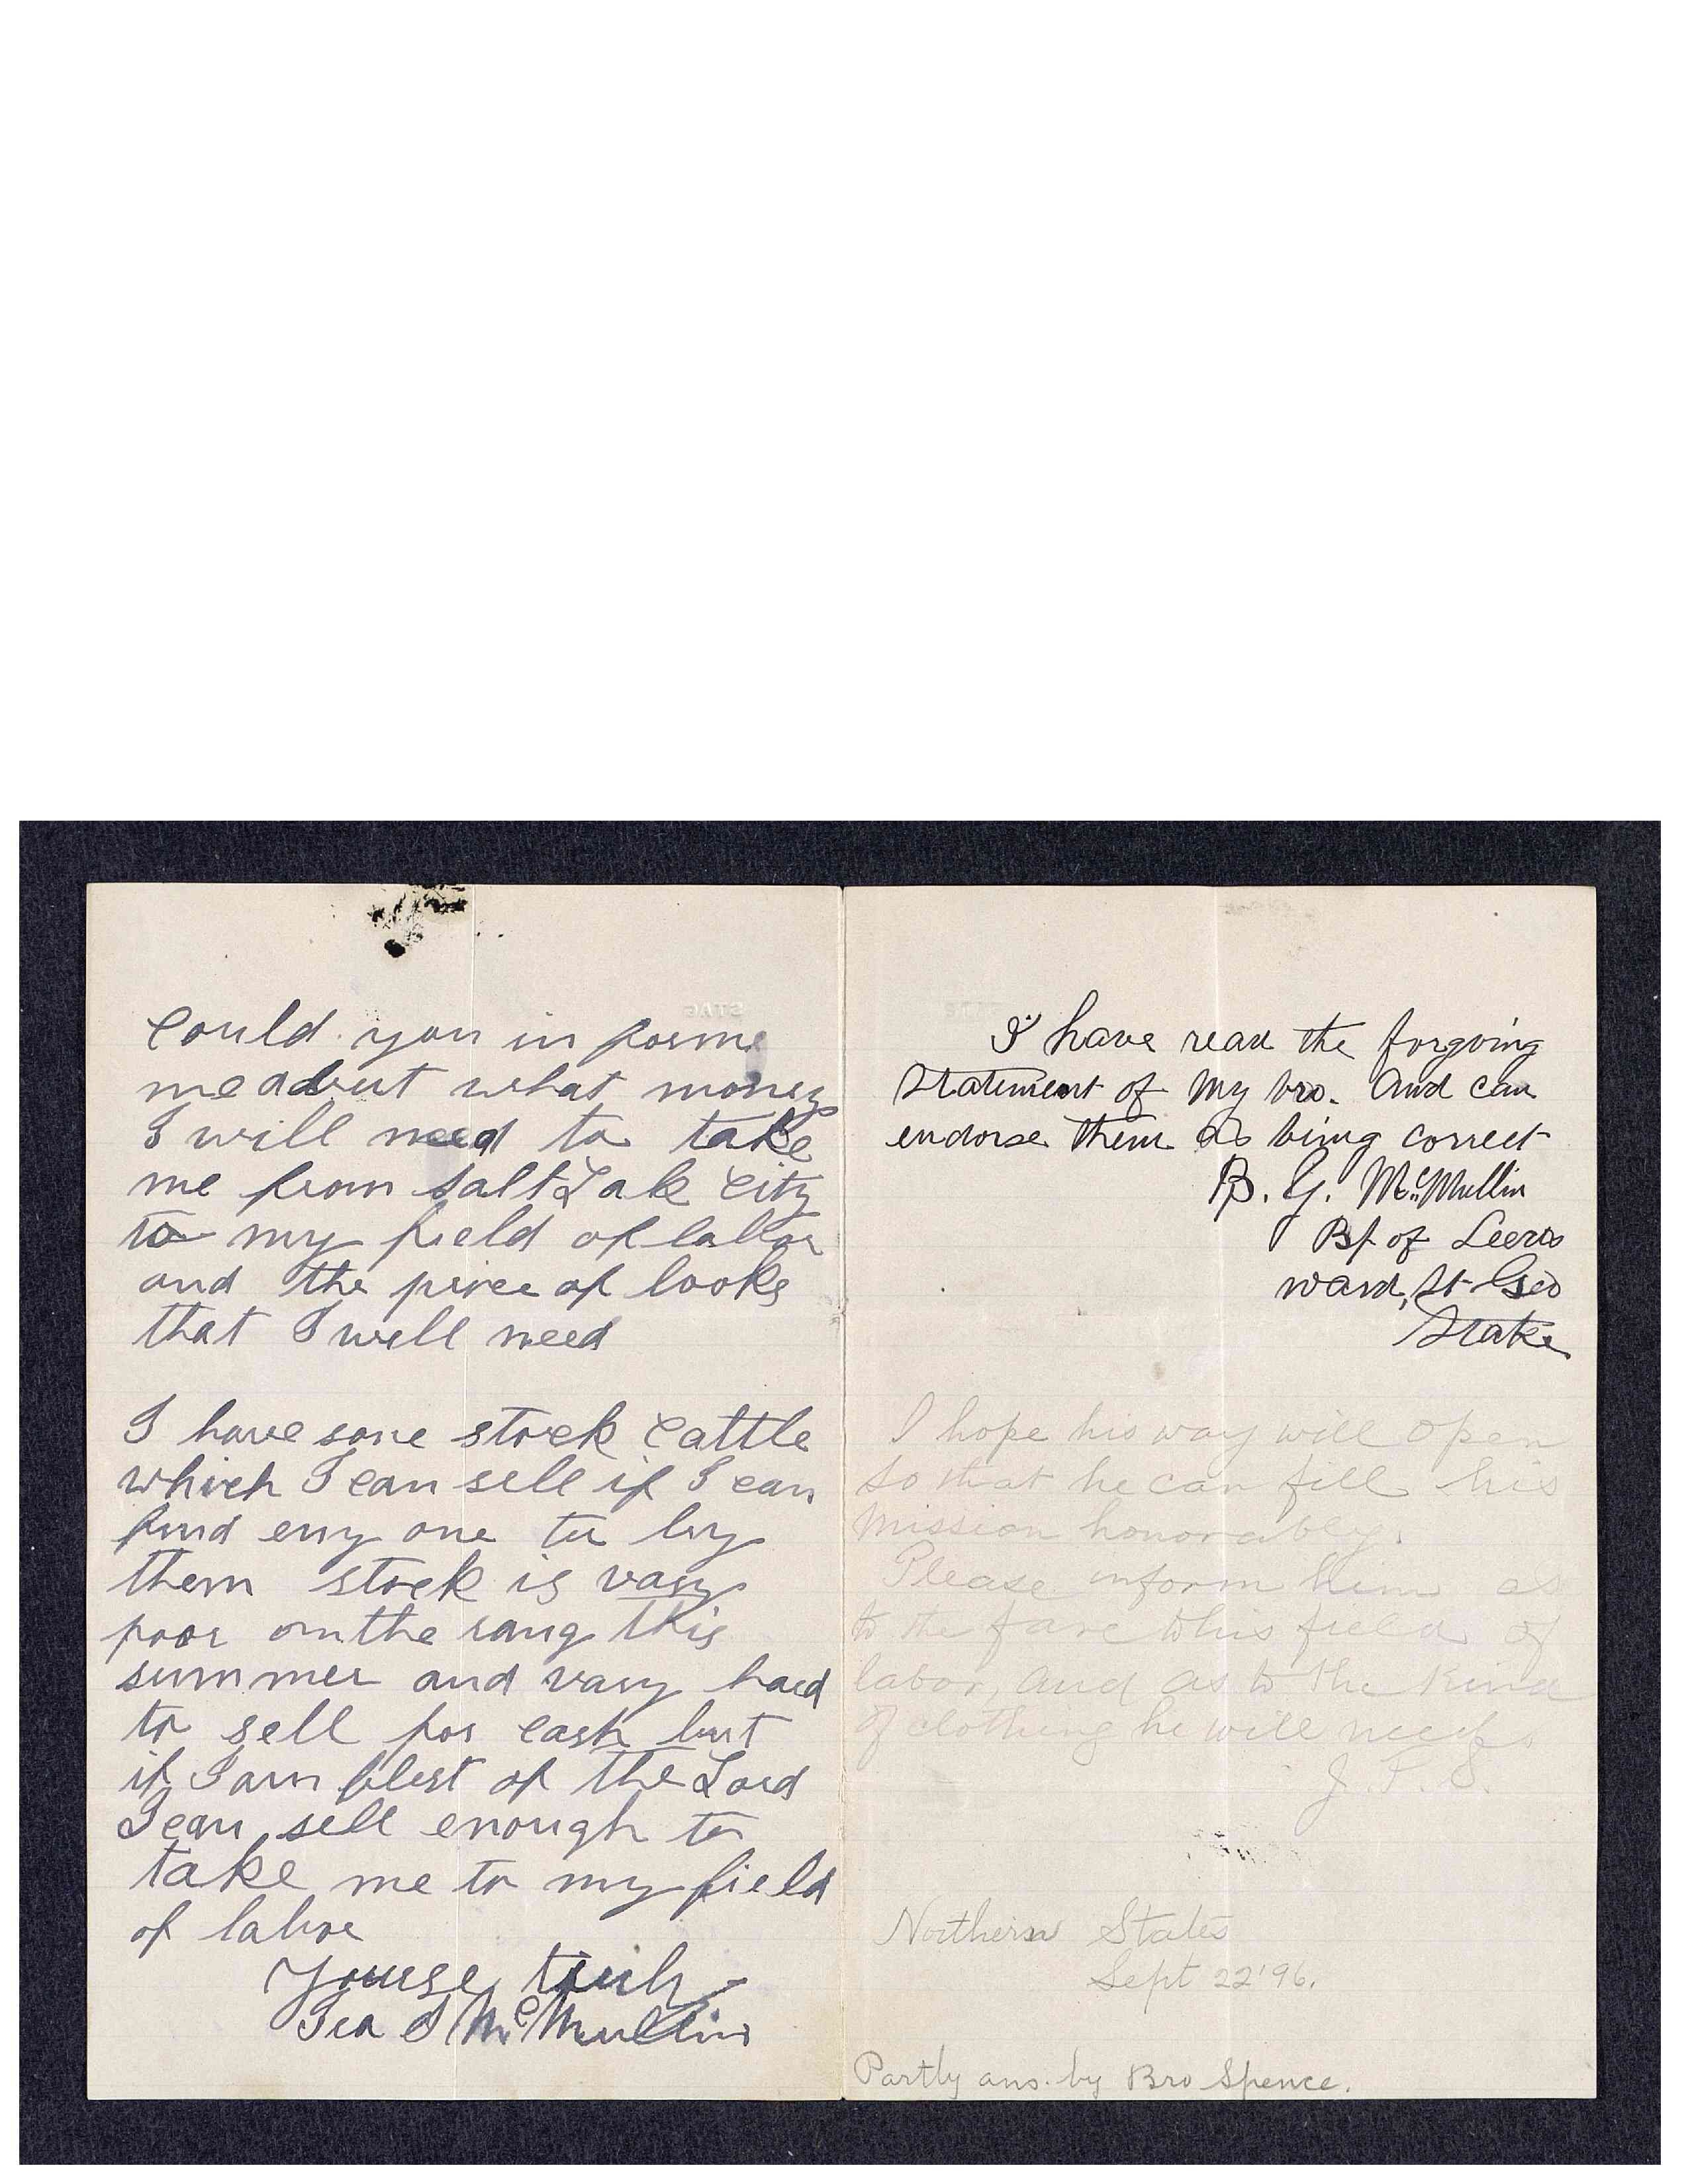 Could you in forme
me about what money
I will need to take
me from Salt Lake City
to my field of labor
and the price of books
that I will need
I have some stock Cattle
which I can sell if I can
find eny one to by
them stock is vary
poor on the rang this
summer and vary hard
to sell for cash but
if I am blest of the Lord
I can sell enough to
take me to my field
of labor
Yourse truly
McMullin
I have read the forgoing
statement of my bro. and can
endorse them as being correct
B. G. McMullin
Bp of Leeds
ward, St Geo
Stake
I hope his way will open
so that he can fill his
mission honorably.
Please inform him as
to the fare to his field of
labor, and as to the kind
of clothing he will need.
J. F. S.
Northern States
Sept 22 '96.
Partly ans. by Bro Spence.